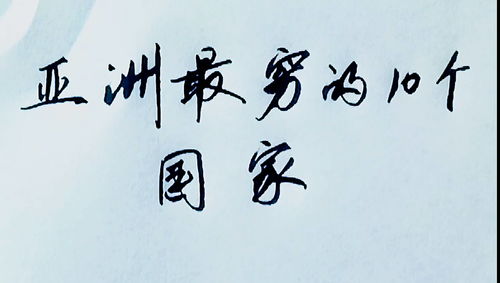 亚洲最穷的10个
国家